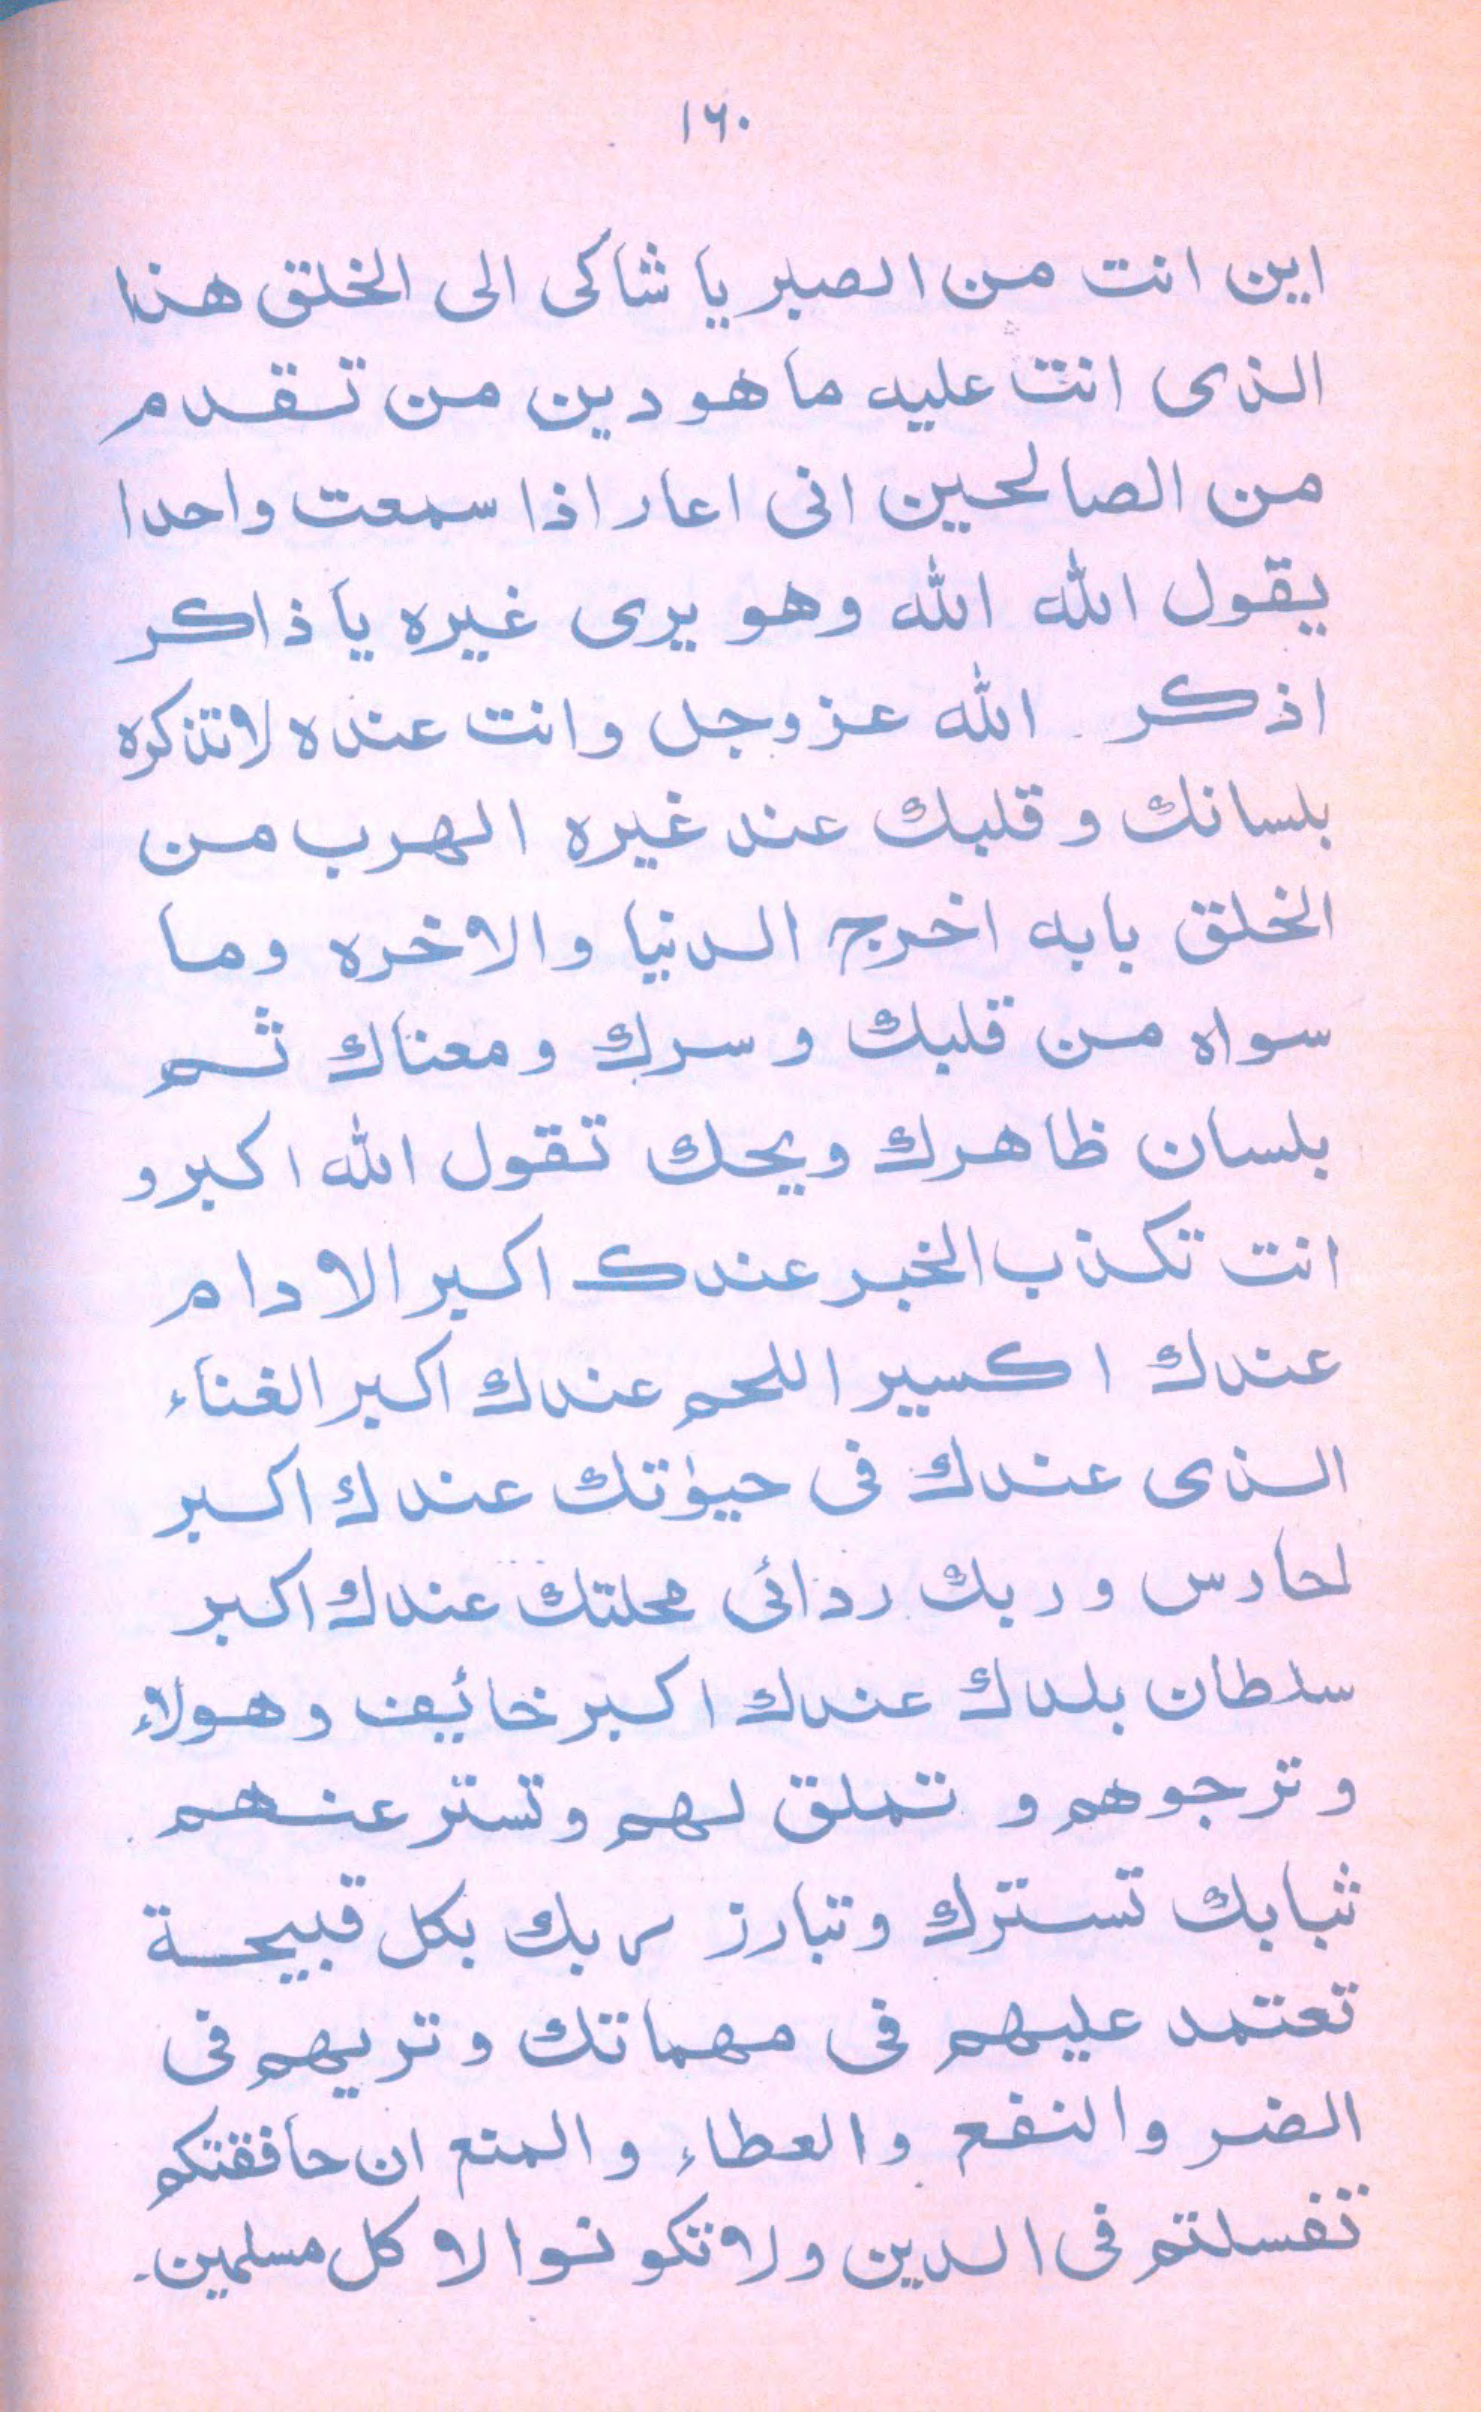 ١٦٠
اين انت من الصبر يا شاكى الى الخلق هذا
الذى انت عليه ما هو دين من تقدم
من الصالحين انى اعار اذا سمعت واحدا
يقول الله الله وهو يرى غيره يا ذاكر
اذكر الله عز وجل وانت عنده لا تذكره
بلسانك وقلبك عند غيره الهرب من
الخلق بابه اخرج الدنيا والاخره وما
سواه من قلبك وسرك ومعناك ثم
بلسان ظاهرك ويحك تقول الله اكبر و
انت تكذب الخبر عندك اكبر الادام
عندك اكسير اللحم عندك اكبر الغناء
الذى عندك فى حيوتك عندك اكبر
لحارس وربك ردائى محلتك عندك اكبر
سلطان بلدك عندك اكبر خائيف وهولاء
وترجوهم و تملق لهم وتستر عنهم
ثبابك تسترك وتبارز ربك بكل قبيحة
تعتمد عليهم فى مهماتك وتريهم فى
الضر والنفع والعطاء والمنع ان حافقتكم
تفسلتم فى الدين ولا تكونوا لا كل مسلمين۔